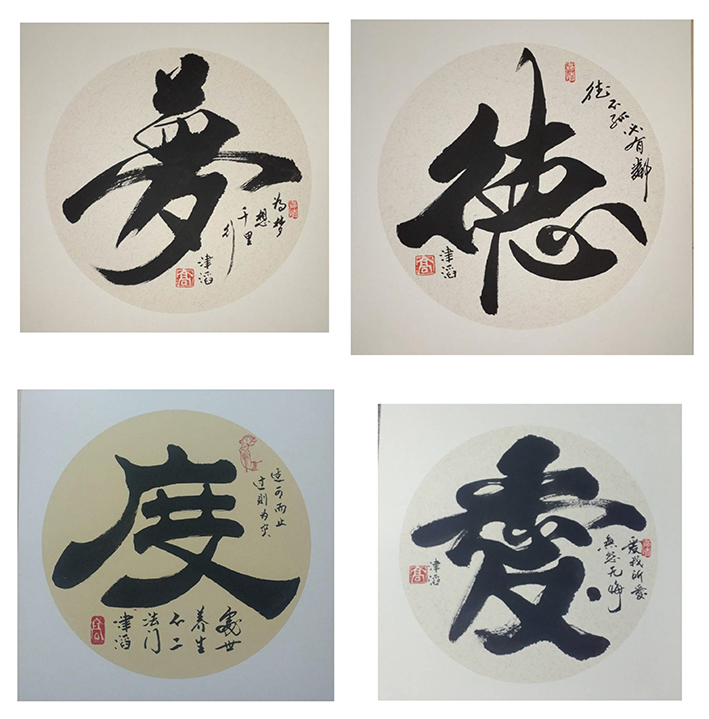 夢
为梦
想
千里
行
津滔
高
德
德不孤
必有鄰
津滔
高
度
适可而止
过则为灾
處世
养生
不二
法门
津滔
愛
爱我所爱
無怨无悔
津滔
高